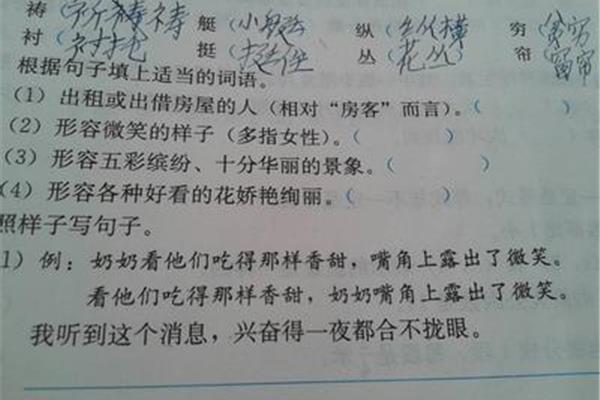 祷（祈祷 艇（小艇 纵（纵横 穷（
衬（衬托 挺（挺住 丛（花丛 帘（窗帘
根据句子填上适当的词语。
（1）出租或出借房屋的人（相对“房客”而言）。（ ）
（2）形容微笑的样子（多指女性）。（ ）
（3）形容五彩缤纷、十分华丽的景象。（ ）
（4）形容各种好看的花娇艳绚丽。（ ）
照样子写句子。
1）例：奶奶看他们吃得那样香甜，嘴角上露出了微笑。
看他们吃得那样香甜，奶奶嘴角上露出了微笑。
我听到这个消息，兴奋得一夜都合不拢眼。